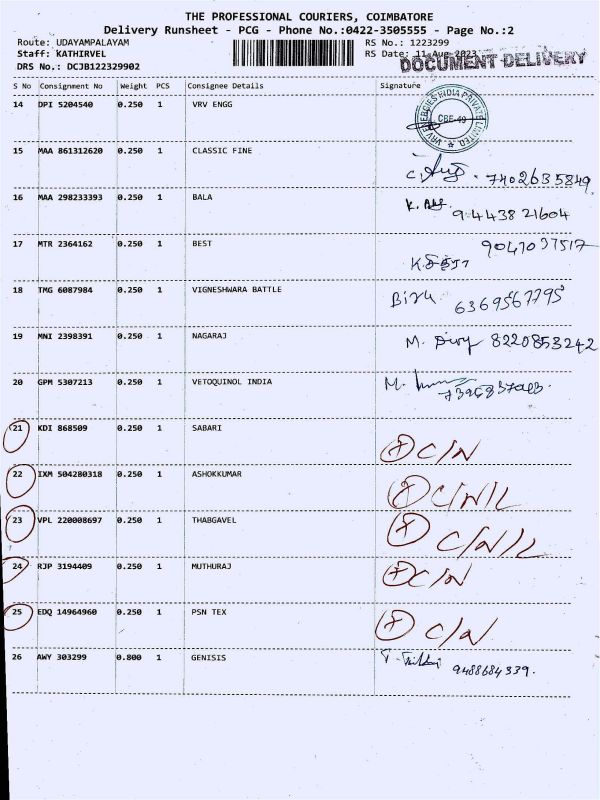 THE PROFESSIONAL COURIERS, COIMBATORE
Delivery Runsheet - PCG - Phone No.:0422-3505555 - Page No.:2
Route: UDAYAMPALAYAM RS No.: 1223299
Staff: KATHIRVEL RS Date: 11-Aug-2023
DOCUMENT DELIVERY
DRS No.: DCJB122329902
S No Consignment No Weight PCS Consignee Details Signature
14 DPI 5204540 0.250 1 VRV ENGG
CBE-49
15 MAA 861312620 0.250 1 CLASSIC FINE
7402635849
16 MAA 298233393 0.250 1 BALA
9443821604
17 MTR 2364162 0.250 1 BEST
9047037517
18 TMG 6087984 0.250 1 VIGNESHWARA BATTLE
6369567795
19 MNI 2398391 0.250 1 NAGARAJ
M. 8220853242
20 GPM 5307213 0.250 1 VETOQUINOL INDIA
M.
21 KDI 868509 0.250 1 SABARI
C/N
22 IXM 504280318 0.250 1 ASHOKKUMAR
C/N/L
23 VPL 220008697 0.250 1 THABGAVEL
C/N/L
24 RJP 3194409 0.250 1 MUTHURAJ
C/N
25 EDQ 14964960 0.250 1 PSN TEX
C/N
26 AWY 303299 0.800 1 GENISIS
9488684339.